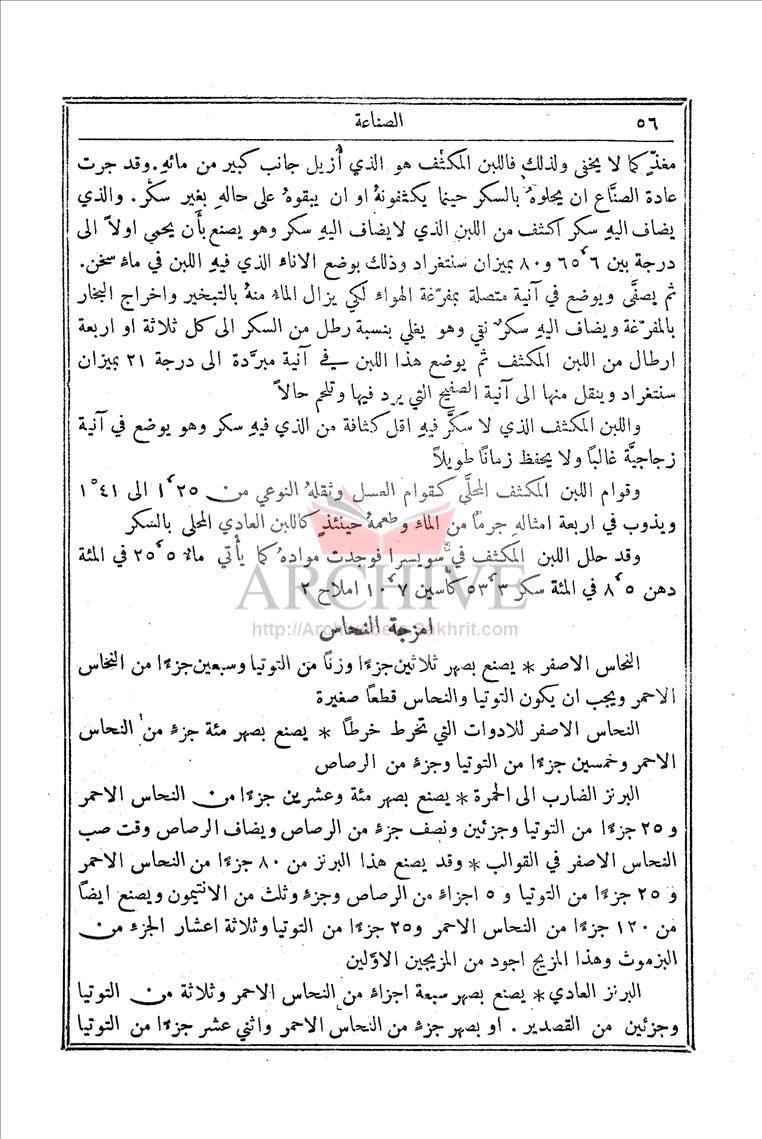 ٥٦
الصناعة
مغذٍّ كما لا يخفى ولذلك فاللبن المكثف هو الذي أُزيل جانب كبير من مائهِ. وقد جرت
عادة الصنَّاع ان يحلوهُ بالسكر حينما يكثفونهُ او ان يبقوهُ على حالهِ بغير سكر. والذي
يضاف اليهِ سكر اكثف من اللبن الذي لا يضاف اليهِ سكر وهو يصنع بأَن يحمى اولاً الى
درجة بين ٦‘٦٥ و ٨٠ بميزان سنتغراد وذلك بوضع الاناء الذي فيهِ اللبن في ماءٍ سخن.
ثم يصفَّى ويوضع في آنية متصلة بمفرّغة الهواء لكي يزال الماءُ منهُ بالتبخير واخراج البخار
بالمفرّغة ويضاف اليهِ سكرٌ نقي وهو يغلي بنسبة رطل من السكر الى كل ثلاثة او اربعة
ارطال من اللبن المكثف ثم يوضع هذا اللبن في آنية مبرَّدة الى درجة ٢١ بميزان
سنتغراد وينقل منها الى آنية الصفيح التي يرد فيها وتلحم حالاً
واللبن المكثف الذي لا سكَّر فيهِ اقل كثافة من الذي فيهِ سكر وهو يوضع في آنية
زجاجيَّة غالبًا ولا يحفظ زمانًا طويلاً
وقوام اللبن المكثف المحلَّى كقوام العسل وثقلهُ النوعي من ٢٥‘١ الى ٤١‘١
ويذوب في اربعة امثالهِ جرمًا من الماء وطعمهُ حينئذٍ كاللبن العادي المحلى بالسكر
وقد حلل اللبن المكثف في سويسرا فوجدت موادهُ كما يأتي ماءٌ ٥‘٢٥ في المئة
دهن ٥‘٨ في المئة سكر ٣‘٥٣ كأسين ٧‘١٠ املاح ٢
ARCHIVE
http://Archivebeta.Sakhrit.com
امزجة النحاس
النحاس الاصفر * يصنع بصهر ثلاثين جزءًا وزنًا من التوتيا وسبعين جزءًا من النحاس
الاحمر ويجب ان يكون التوتيا والنحاس قطعًا صغيرة
النحاس الاصفر للادوات التي تخرط خرطًا * يصنع بصهر مئة جزء من النحاس
الاحمر وخمسين جزءًا من التوتيا وجزء من الرصاص
البرنز الضارب الى الحمرة * يصنع بصهر مئة وعشرين جزءًا من النحاس الاحمر
و ٢٥ جزءًا من التوتيا وجزئين ونصف جزء من الرصاص ويضاف الرصاص وقت صب
النحاس الاصفر في القوالب * وقد يصنع هذا البرنز من ٨٠ جزءًا من النحاس الاحمر
و ٢٥ جزءًا من التوتيا و ٥ اجزاءٍ من الرصاص وجزءٍ وثلث من الانتيمون ويصنع ايضًا
من ١٢٠ جزءًا من النحاس الاحمر و٢٥ جزءًا من التوتيا وثلاثة اعشار الجزء من
البزموث وهذا المزيج اجود من المزيجين الاوّلين
البرنز العادي * يصنع بصهر سبعة اجزاء من النحاس الاحمر وثلاثة من التوتيا
وجزئين من القصدير . او بصهر جزء من النحاس الاحمر واثني عشر جزءًا من التوتيا